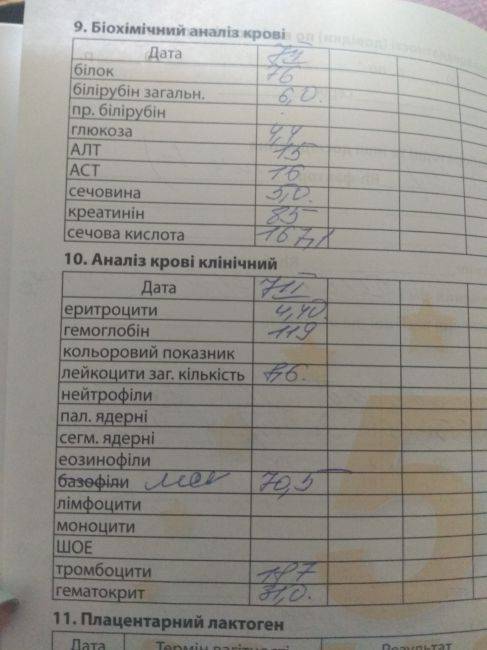 9. Біохімічний аналіз крові
Дата 7/II
білок 76
білірубін загальн. 6,0.
пр. білірубін
глюкоза 4,4
АЛТ 15
АСТ 16
сечовина 5,0.
креатинін 85
сечова кислота 167,1
10. Аналіз крові клінічний
Дата 7/II
еритроцити 4,40
гемоглобін 119
кольоровий показник
лейкоцити заг. кількість
нейтрофіли
пал. ядерні
сегм. ядерні
еозинофіли
базофіли 70,5
лімфоцити
моноцити
ШОЕ
тромбоцити 187
гематокрит 31,0.
11. Плацентарний лактоген
Дата Термін вагітності Результат